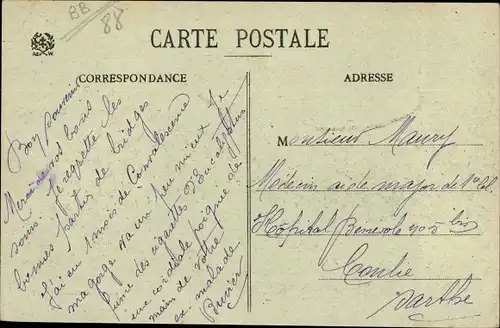 BB
88
CARTE POSTALE
CORRESPONDANCE
Bon souvenir
Merci de vos bons
soins. Je regrette les
bonnes parties de bridges
J'ai eu 1 mois de Convalescence
ma gorge va un peu mieux je
fume des cigarettes d'Eucalyptus
une cordiale poignée de
main de votre
ex malade
Buvier
ADRESSE
Monsieur Maury
Médecin aide major de 1re Cl
Hôpital Bénévole 905 bis
Conlie
Sarthe